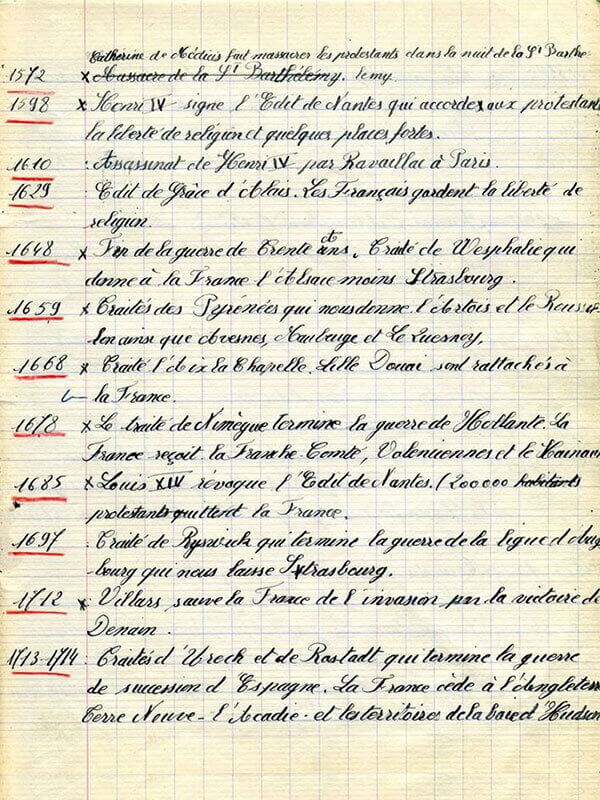 Catherine de Médicis fait massacrer les protestants dans la nuit de la St Barthé-
1572 x Massacre de la St Barthélemy. lemy
1598 x Henri IV signe l'Edit de Nantes qui accorde aux protestants
la liberté de religion et quelques places fortes.
1610 : Assassinat de Henri IV par Ravaillac à Paris.
1629 : Edit de Grâce d'Alais. Les Français gardent la liberté de
religion.
1648 x Fin de la guerre de Trente ans. et Traité de Wesphalie qui
donne à la France l'Alsace moins Strasbourg.
1659 x Traités des Pyrénées qui nous donne l'Artois et le Roussil-
lon ainsi que Avesnes, Maubeuge et Le Quesnoy,
1668 x Traité d'Aix la Chapelle. Lille Douai sont rattachés à
la France.
1678 x Le traité de Nimègue termine la guerre de Hollante. La
France reçoit la Franche-Comté, Valenciennes et le Hainaut
1685 x Louis XIV révoque l'Edit de Nantes. (200000 habitants
protestants quittent la France.
1697 Traité de Ryswick qui termine la guerre de la ligue d'Aug
bourg qui nous laisse Strasbourg.
1712 x Villars sauve la France de l'invasion par la victoire de
Denain.
1713-1714 : Traités d'Urech et de Rastadt qui termine la guerre
de succession d'Espagne. La France cède à l'Angleterre
Terre Neuve - l'Acadie - et les territoires de la baie d'Hudson